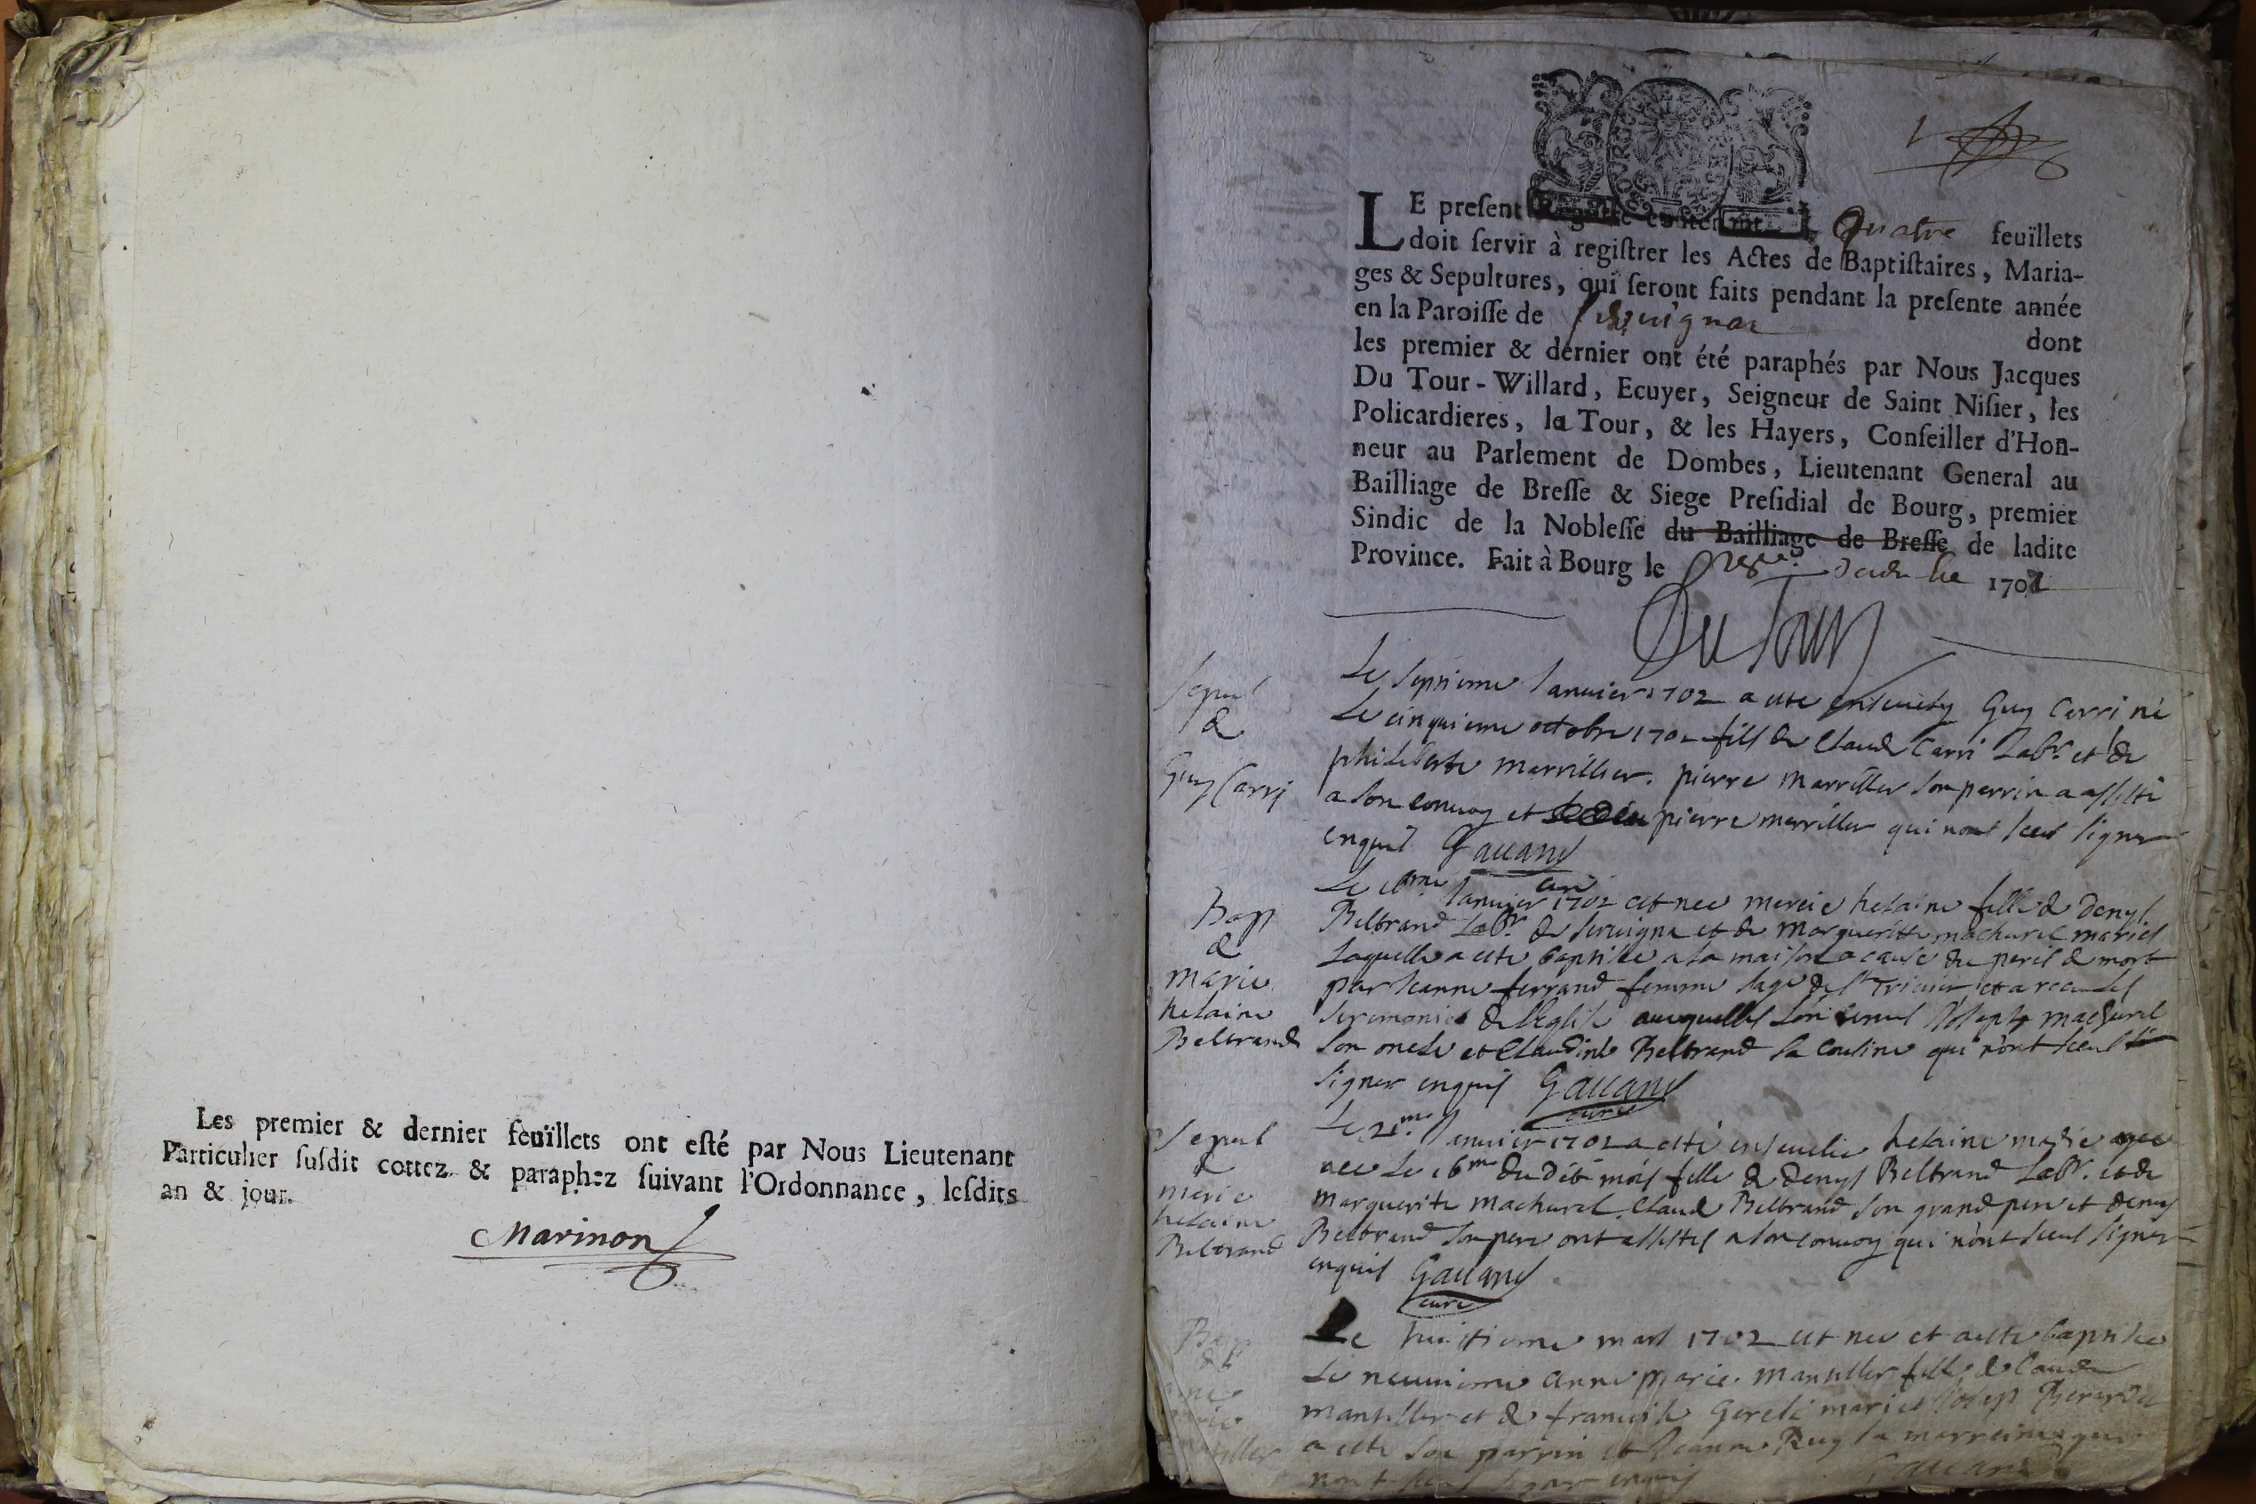 Les premier & dernier feüillets ont esté par Nous Lieutenant
Particulier susdit cottez & paraphez suivant l'Ordonnance, lesdits
an & jour.
Marinon
LE present Registre contenant Quatre feüillets
doit servir à registrer les Actes de Baptistaires, Maria-
ges & Sepultures, qui seront faits pendant la presente année
en la Paroisse de Servignat dont
les premier & dernier ont été paraphés par Nous Jacques
Du Tour-Willard, Ecuyer, Seigneur de Saint Nisier, les
Policardieres, la Tour, & les Hayers, Conseiller d'Hon-
neur au Parlement de Dombes, Lieutenant General au
Bailliage de Bresse & Siege Presidial de Bourg, premier
Sindic de la Noblesse du Bailliage de Bresse de ladite
Province. Fait à Bourg le 1702
Du Tour
Sepul
de
Guy Carri
Le septieme Janvier 1702 a este ensevely Guy Carri né
Le cinquieme octobre 1701 fils de Claude Carri Labr. et de
philiberte marvillier. pierre marviller son perrin a assisté
a son convoy et pierre merviller qui nont sceu signer
enquis Gauand
curé
Bap
de
marie
helaine
Beltrand
Le 16me Janvier 1702 est nee mereie helaine fille de Denys
Beltrand Labr. de servigna et de marguerite machurel mariés
Laquelle a este baptisée a la maison a cause du peril de mort
par Jeanne ferrand femme sage de st Trivier et a receu les
seremonies de l'eglise auxquelles l'on tenue Joseph machurel
son oncle et Claudine Beltrand sa cousine qui n'ont sceu
signer enquis Gauand
curé
Sepul
de
merie
helaine
Beltrand
Le 21me Janvier 1702 a esté ensevelie helaine marie
nee le 16me du dit mois fille de denys Beltrand Labr. et de
marguerite machurel. Claude Beltrand son grand pere et denys
Beltrand son pere ont assistés a son convoy qui n'ont sceus signer
enquis Gauand
curé
Bap
de
marie
Le huictieme mars 1702 est nee et a este baptisée
Le neuvieme anne marie mantiller fille de Claude
mantiller et de francoise mariés Josep Berardet
a este son parrin et Jeanne Ruy sa marreine qui
nont sceu signer enquis Gauand